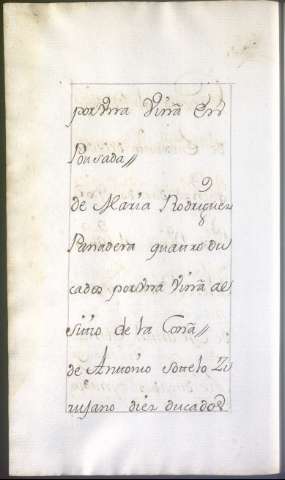 por Vna Viñã En
Pousada //
de Maria Rodriguez
Panadera quatro du
cados por Vna Viñã al
sitio de la
de Antonio sotelo Zi
rujano diez ducados